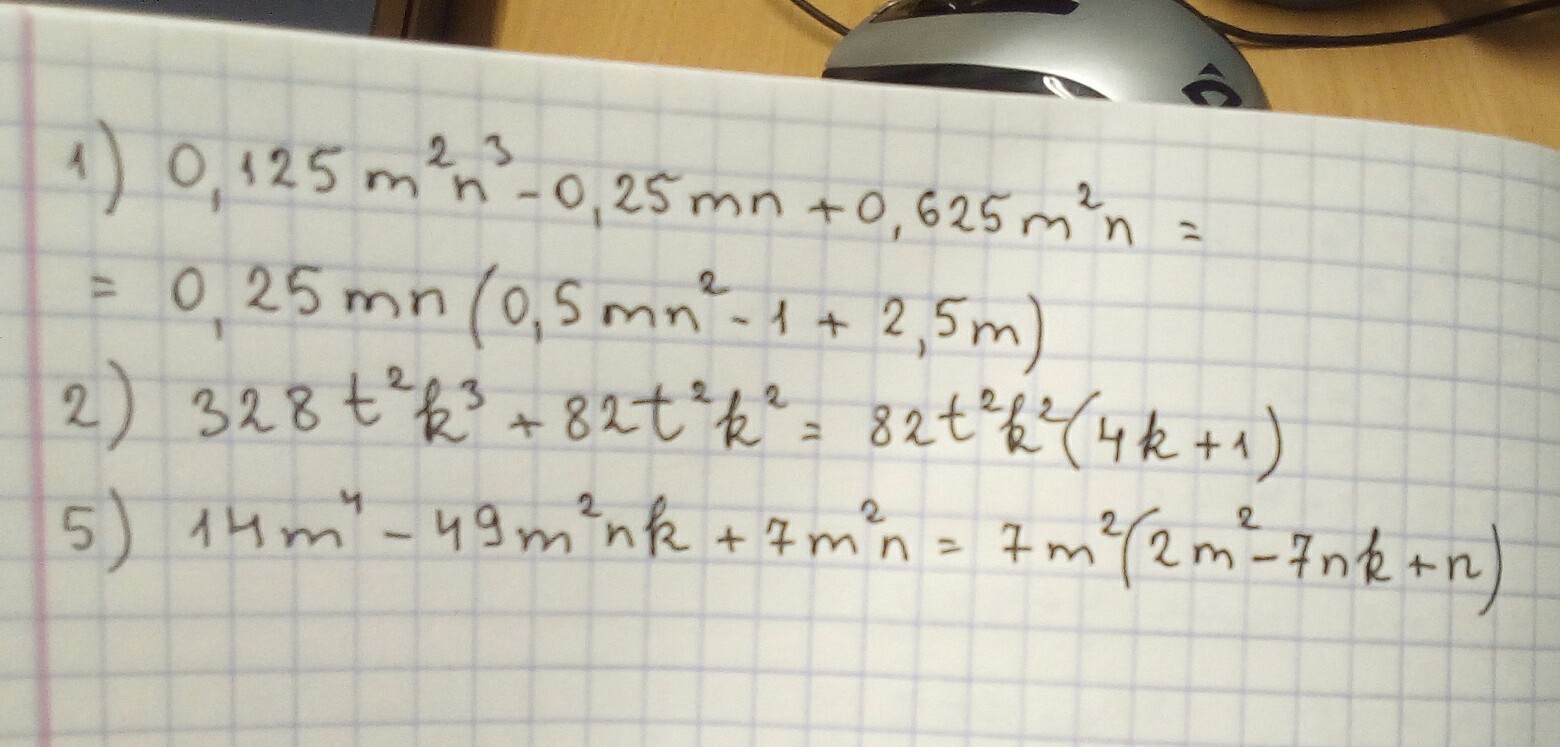 1) 0,125m²n³ - 0,25mn + 0,625m²n =
= 0,25mn(0,5mn² - 1 + 2,5m)
2) 328t²k³ + 82t²k² = 82t²k²(4k + 1)
5) 14m⁴ - 49m²nk + 7m²n = 7m²(2m² - 7nk + n)